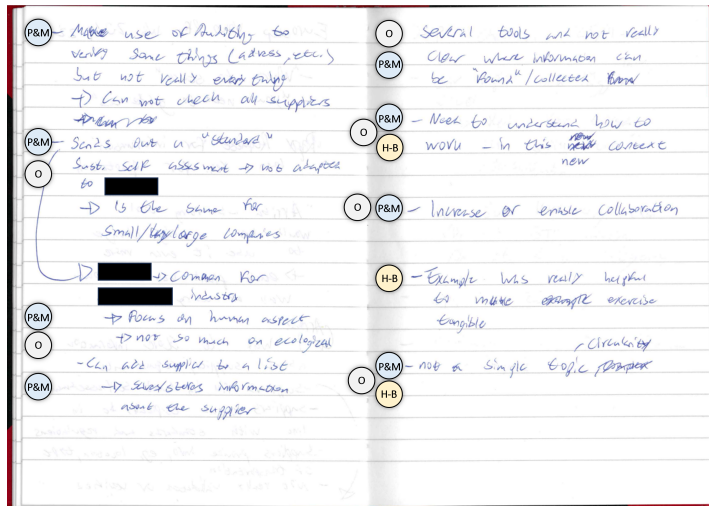 P&M - Make use of Auditing to
verify some things (adress, etc.)
but not really everything
→ Can not check all suppliers
P&M - Sends out a "standard"
O Sust. self assesment → not adapted
to
→ is the same for
Small/large companies
→ Common for
industry
P&M → Focus on human aspect
O → not so much on ecological
- Can add supplier to a list
P&M → information
about the supplier
O Several tools and not really
P&M Clear where information can
be "found"/collected
P&M - Need to understand how to
O H-B work - in this new context
new
O P&M - Increase or enable collaboration
H-B - Example was really helpful
to make exercise
tangible
, Circularity
P&M - not a simple topic
O
H-B